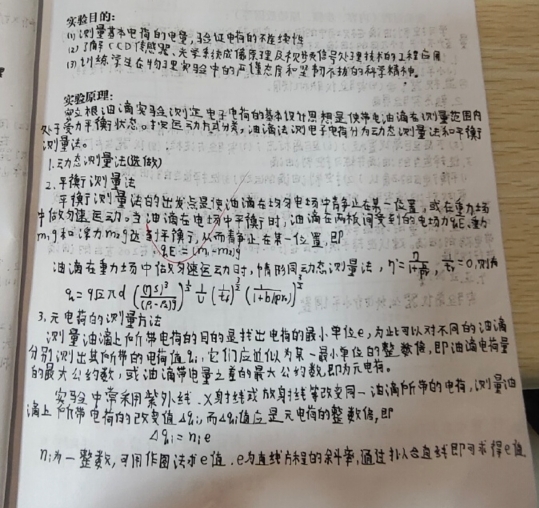 实验目的:
(1) 测量基本电荷的电量,验证电荷的不连续性
(2) 了解CCD传感器、光学系统成像原理及视频信号处理技术的工程应用
(3) 训练学生在物理实验中的严谨态度和坚韧不拔的科学精神。
实验原理:
密立根油滴实验测定电子电荷的基本设计思想是使带电油滴在测量范围内
处于受力平衡状态。按运动方式分类,油滴法测电子电荷分为动态测量法和平衡
测量法。
1.动态测量法(选做)
2.平衡测量法
平衡测量法的出发点是使油滴在均匀电场中静止在某一位置,或在重力场
中做匀速运动。当油滴在电场中平衡时,油滴在两极间受到的电场力qE,重力
m₁g和浮力m₂g达到平衡,从而静止在某一位置,即
qE=(m₁-m₂)g
油滴在重力场中做匀速运动时,情形同动态测量法,
3.元电荷的测量方法
测量油滴上所带电荷的目的是找出电荷的最小单位e,为此可以对不同的油滴
分别测出其所带的电荷值qᵢ,它们应近似为某一最小单位的整数倍,即油滴电荷量
的最大公约数,或油滴带电量之差的最大公约数,即为元电荷。
实验中常采用紫外线、X射线或放射线等改变同一油滴所带的电荷,测量油
滴上所带电荷的改变值Δqᵢ,而Δqᵢ值应是元电荷的整数倍,即
Δqᵢ=nᵢe
nᵢ为一整数,可用作图法求e值,e为直线方程的斜率,通过拟合直线即可求得e值